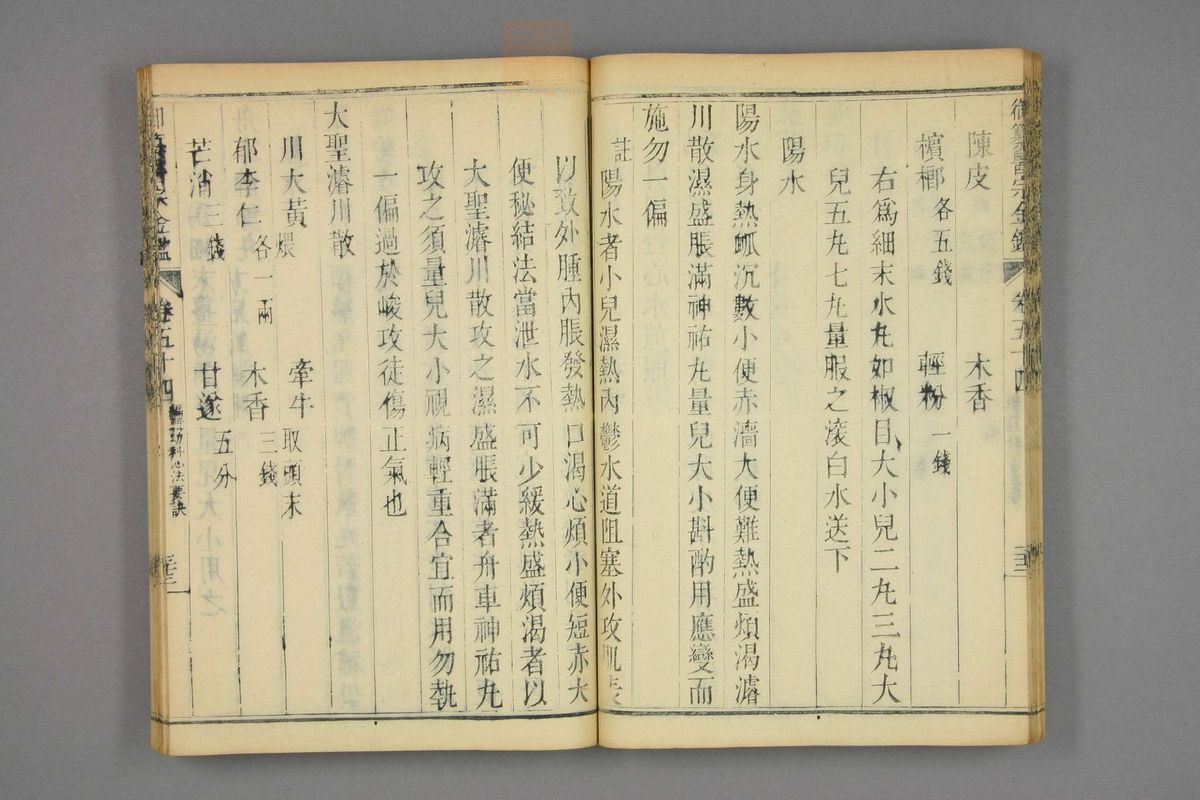 陳皮　木香
檳榔各五錢　輕粉一錢
右爲細末水丸如椒目大小兒二丸三丸大
兒五丸七丸量服之滾白水送下
陽水
陽水身熱脈沉數小便赤澀大便難熱盛煩渴濬
川散濕盛脹滿神祐丸量兒大小斟酌用應變而
施勿一偏
註陽水者小兒濕熱內鬱水道阻塞外攻肌表
以致外腫內脹發熱口渴心煩小便短赤大
便秘結法當泄水不可少緩熱盛煩渴者以
大聖濬川散攻之濕盛脹滿者舟車神祐丸
攻之須量兒大小視病輕重合宜而用勿執
一偏過於峻攻徒傷正氣也
大聖濬川散
川大黃煨　牽牛取頭末
郁李仁各一兩　木香三錢
芒消三錢　甘遂五分
卷五十四
幼科心法要訣